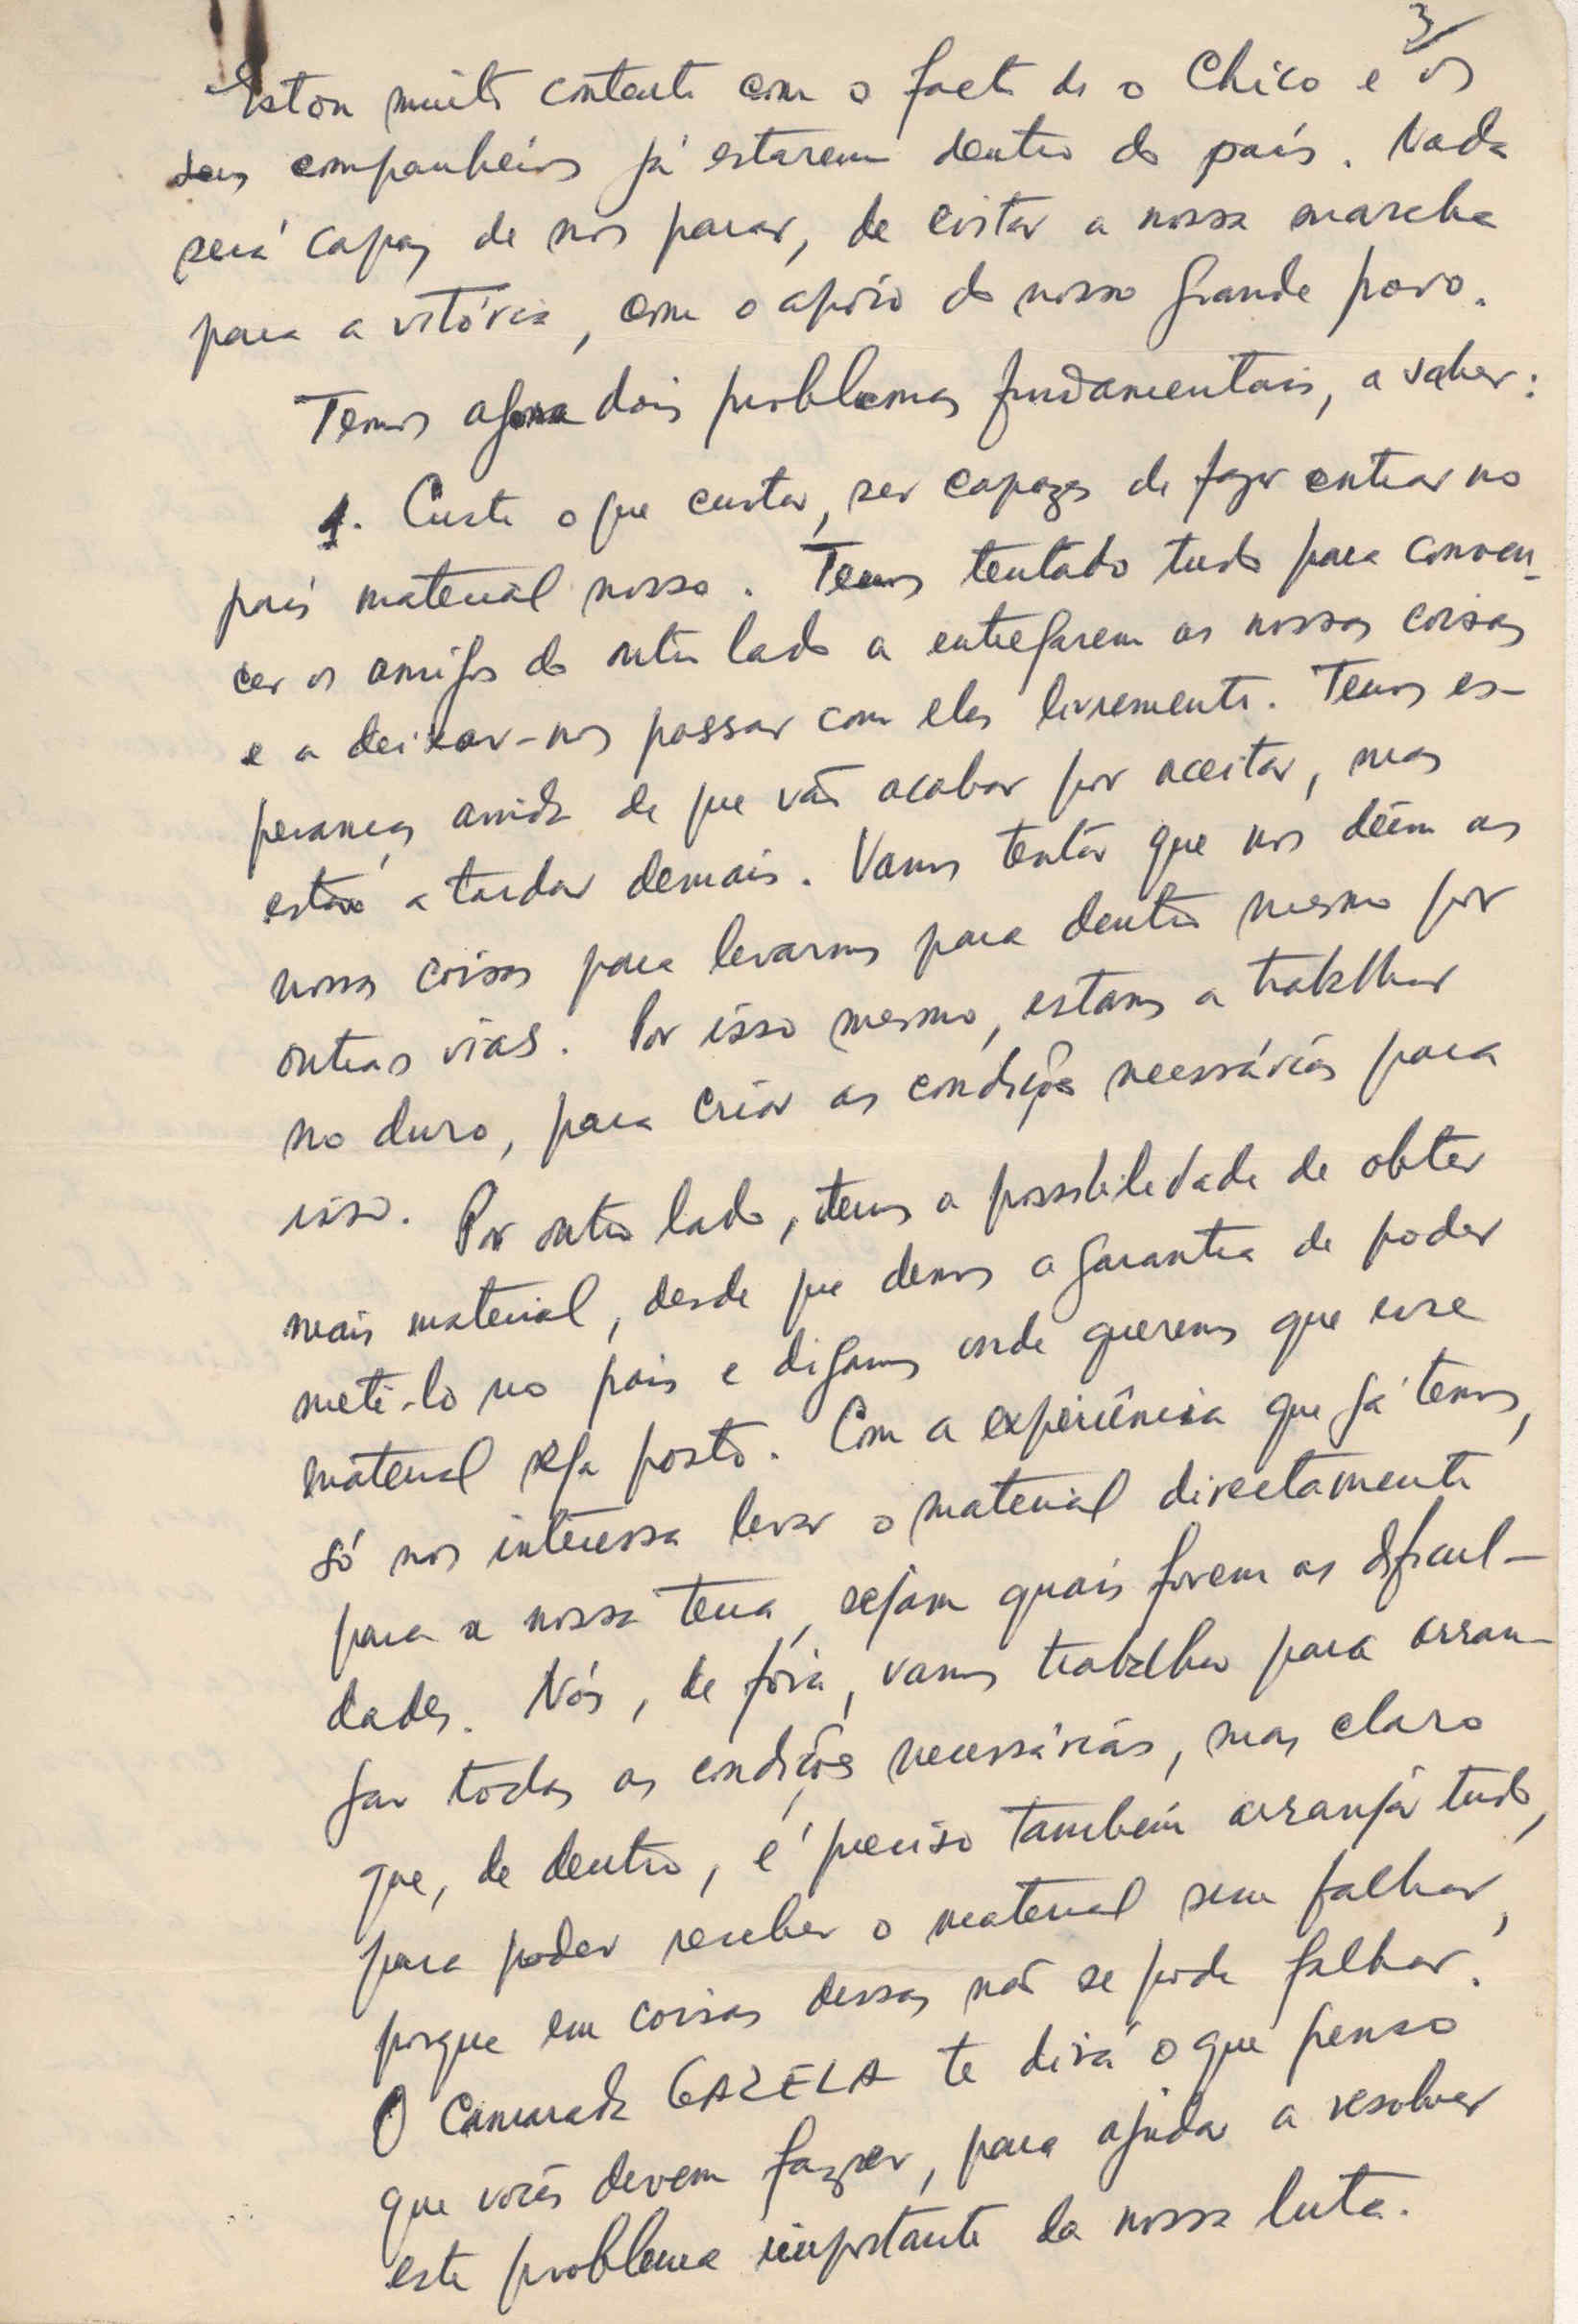 3/
Estou muito contente com o facto de o Chico e os
seus companheiros já estarem dentro do país. Nada
será capaz de nos parar, de evitar a nossa marcha
para a vitória, com o apôio do nosso grande povo.
Temos agora dois problemas fundamentais, a saber:
1. Custe o que custar, ser capazes de fazer entrar no
país material nosso. Temos tentado tudo para conven-
cer os amigos do outro lado a entregarem as nossas coisas
e a deixar-nos passar com elas livremente. Temos es-
peranças ainda de que vão acabar por aceitar, mas
estão a tardar demais. Vamos tentar que nos dêem as
nossas coisas para levarmos para dentro mesmo por
outras vias. Por isso mesmo, estamos a trabalhar
no duro, para criar as condições necessárias para
isso. Por outro lado, temos a possibilidade de obter
mais material, desde que demos a garantia de poder
metê-lo no país e digamos onde queremos que esse
material seja posto. Com a experiência que já temos,
só nos interessa levar o material directamente
para a nossa terra, sejam quais forem as dificul-
dades. Nós, de fóra, vamos trabalhar para arran-
jar todas as condições necessárias, mas claro
que, de dentro, é preciso também arranjar tudo,
para poder receber o material sem falhar,
porque em coisas dessas não se pode falhar.
O Camarada GAZELA te dirá o que penso
que vocês devem fazer, para ajudar a resolver
este problema importante da nossa luta.